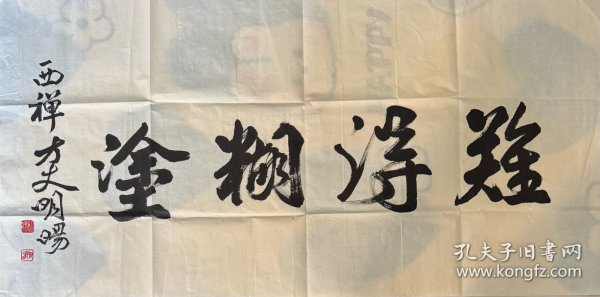 難得糊塗
西禅方丈明暘
孔夫子旧书网
www.kongfz.com